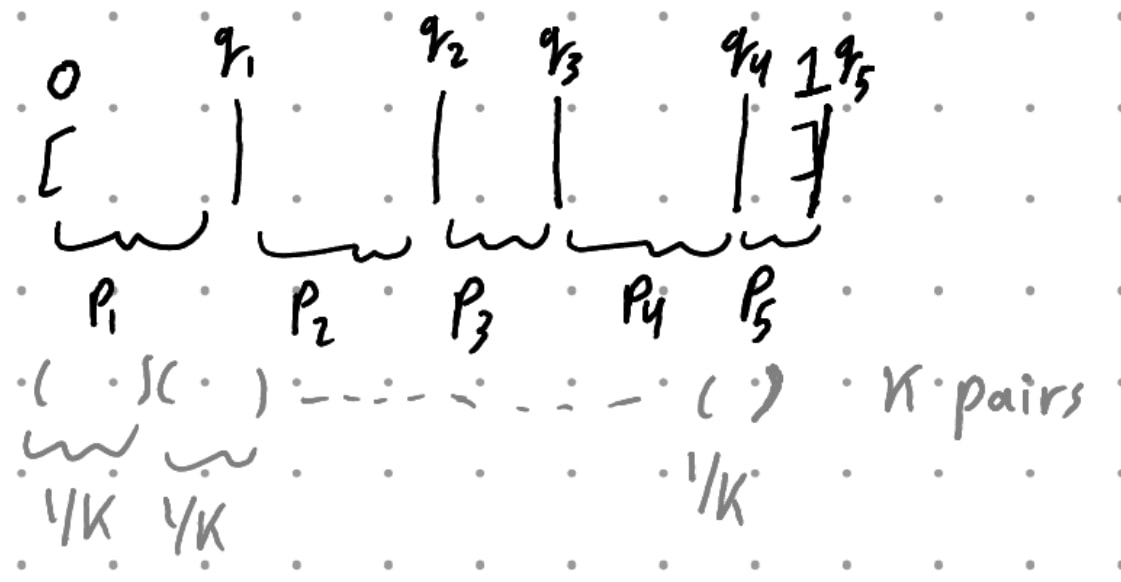 0 q₁ q₂ q₃ q₄ 1 q₅
[ ]
p₁ p₂ p₃ p₄ p₅
( )( ) ------- ( ) K pairs
1/K 1/K 1/K